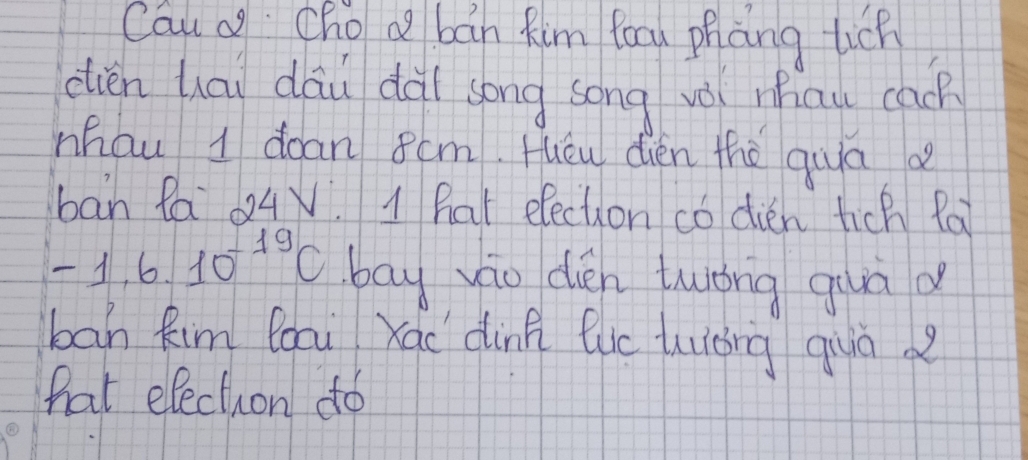 Câu 2: Cho 2 bản kim loại phẳng tích
điện trái dấu đặt song song với nhau cách
nhau 1 đoạn 8cm. Hiệu điện thế giữa 2
bản là 24V. 1 hạt election có điện tích là
-1,6.10^-19C bay vào điện trường giữa 2
bản kim loại. Xác định lực trường giữa 2
hạt election đó